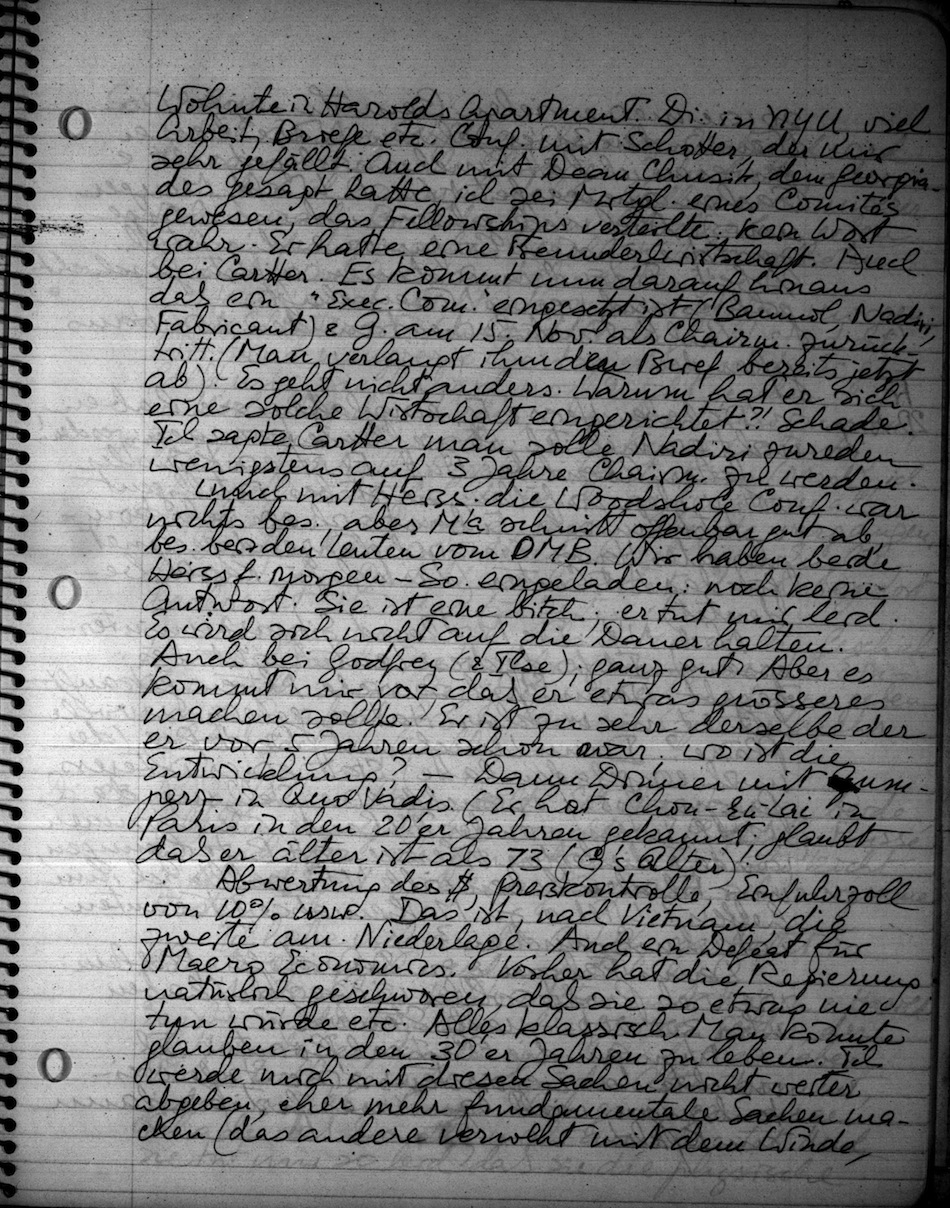 Wohnte in Harolds Apartment. Di. in NYU, viel
Arbeit, Briefe etc. Conf. mit Schotter, der mir
sehr gefällt. Auch mit Dean, dem Georgia-
des gesagt hatte, ich sei Mitgl. eines Comités
gewesen, das Fellowships verteilte: kein Wort
wahr. Er hatte eine Freunderlwirtschaft. Auch
bei Cartter. Es kommt nun darauf hinaus
das ein "Exec. Com." eingesetzt ist (Baumol, Nadiri,
Fabricant) & G. am 15. Nov. als Chairm. zurück-
tritt. (Man verlangt ihm den Brief bereits jetzt
ab). Es geht nicht anders. Warum hat er sich
eine solche Wirtschaft eingerichtet?! Schade.
Ich sagte Cartter man solle Nadiri zureden
wenigstens auf 3 Jahre Chairm. zu werden.
Lunch mit Heiss. die Woodshole Conf. war
nichts bes., aber M'a schnitt offenbar gut ab,
bes. bei den Leuten vom OMB. Wir haben beide
Heiss f. morgen – So. eingeladen: noch keine
Antwort. Sie ist eine bitch; er tut mir leid.
Es wird sich nicht auf die Dauer halten.
Auch bei Godfrey (& Ilse); ganz gut. Aber es
kommt mir vor, das er etwas grösseres
machen sollte. Er ist zu sehr derselbe der
er vor 5 Jahren schon war. Wo ist die
Entwicklung? – Dann Dinner mit Gum-
perz in Quo Vadis. (Er hat Chou-En-Lai in
Paris in den 20'er Jahren gekannt; glaubt
das er älter ist als 73 (G's Alter).
Abwertung des $, Preiskontrolle, Einfuhrzoll
von 10% usw. Das ist, nach Vietnam, die
zweite am. Niederlage. Auch ein Defeat für
Macro Economics. Vorher hat die Regierung
natürlich geschworen, das sie so etwas nie
tun würde etc. Alles klassisch. Man könnte
glauben in den 30'er Jahren zu leben. Ich
werde mich mit diesen Sachen nicht weiter
abgeben, eher mehr fundamentale Sachen ma-
chen (das andere verweht mit dem Winde,